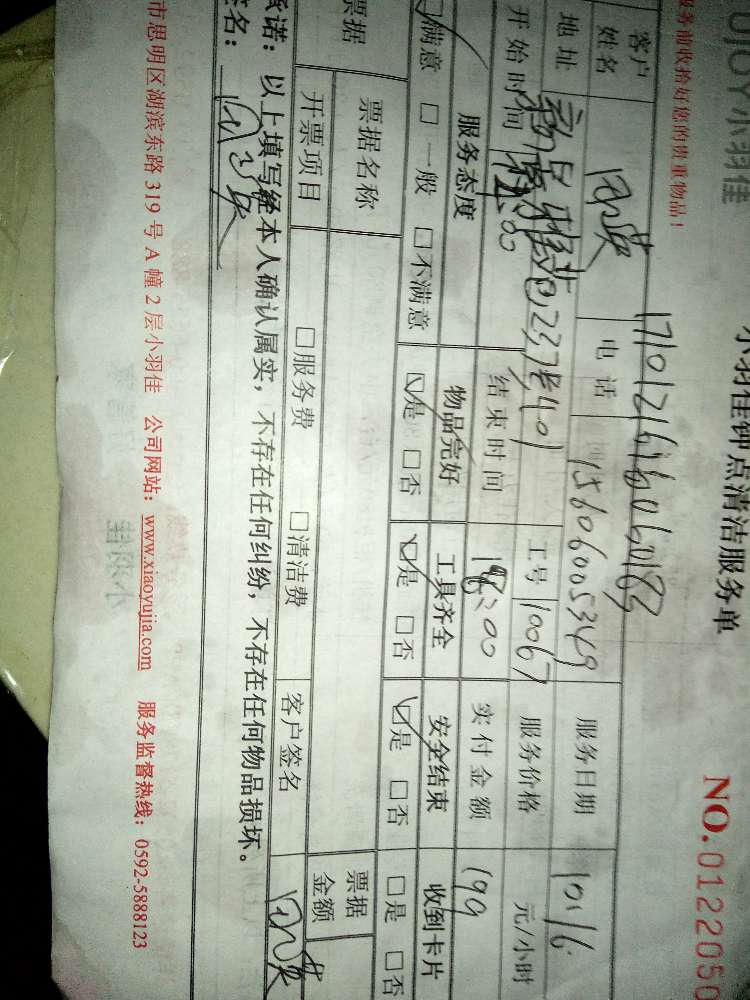 UJOY小羽佳
小羽佳钟点清洁服务单
NO.0122050
服务前收拾好您的贵重物品！
1710121616060183
客户姓名 电话 15606005349 服务日期 10.16
地址 237 401 工号 10067 服务价格 元/小时
开始时间 :00 结束时间 18:00 实付金额 199
服务态度 物品完好 工具齐全 安全结束 收到卡片
☑满意 □一般 □不满意 ☑是 □否 ☑是 □否 ☑是 □否 □是 □否
票据 票据名称 票据金额
开票项目 □服务费 □清洁费 客户签名
承诺：以上填写经本人确认属实，不存在任何纠纷，不存在任何物品损坏。
签名：
市思明区湖滨东路 319 号 A 幢 2 层小羽佳 公司网站：www.xiaoyujia.com 服务监督热线：0592-5888123